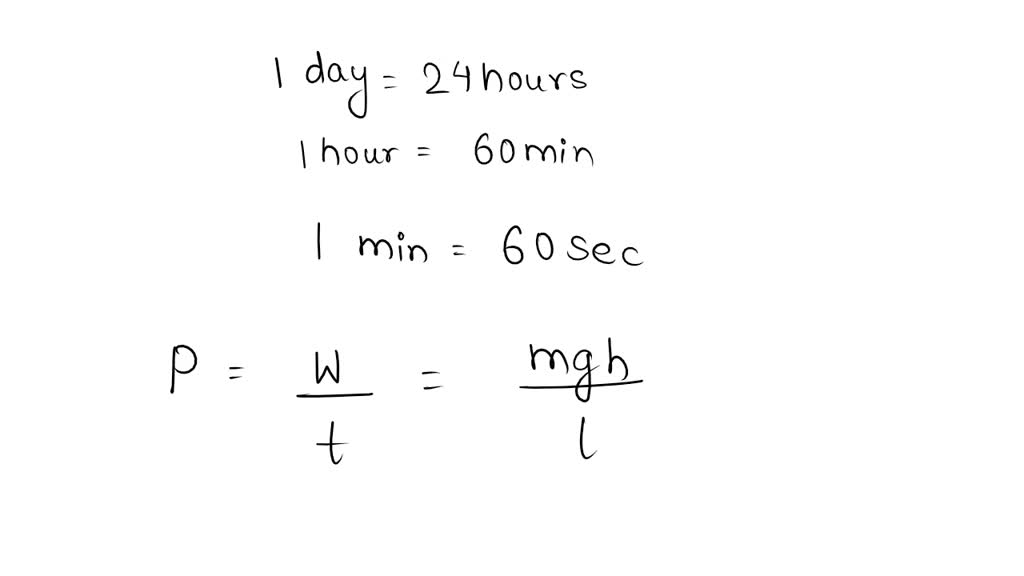 1 day = 24 hours
1 hour = 60 min
1 min = 60 sec
P = W/t = mgh/l